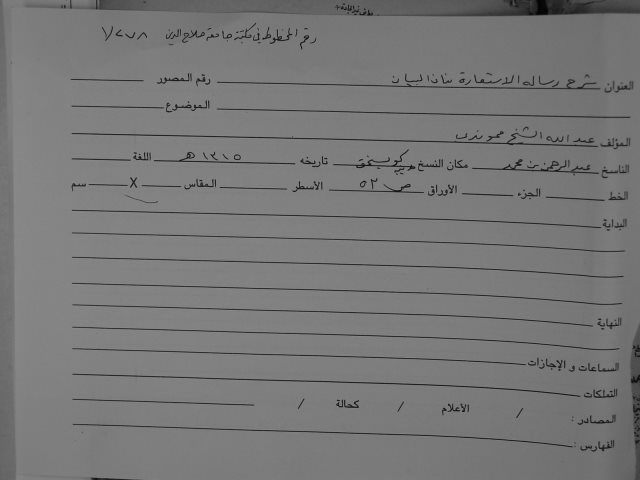 رقم المخطوط في مكتبة جامعة صلاح الدين ١/٢٧٨
العنوان شرح رسالة الاستعارة بنان البيان رقم المصور
الموضوع
المؤلف عبد الله الشيخ
الناسخ عبد الرحمن بن محمد مكان النسخ تاريخه ١٣١٥ هـ اللغة
الخط الجزء الأوراق ٥٢ ص الأسطر المقاس X سم
البداية
النهاية
السماعات و الإجازات
التملكات
المصادر : / الأعلام / كحالة /
الفهارس :